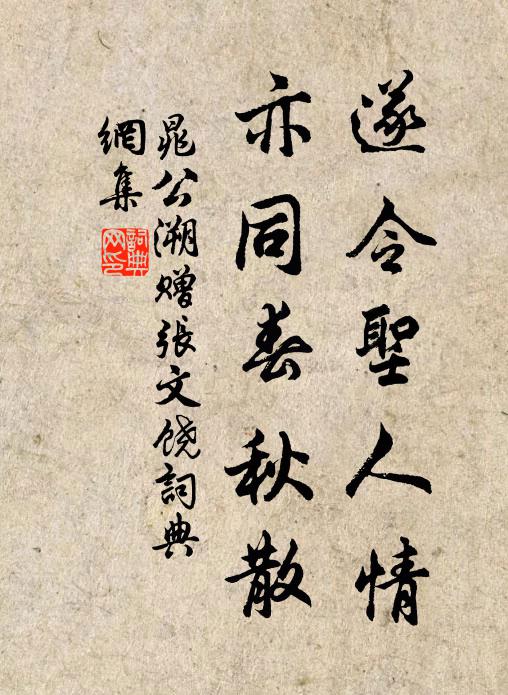 遂令聖人情
亦同春秋散
晁公溯贈張文饶詞典
網集
詞典
网印